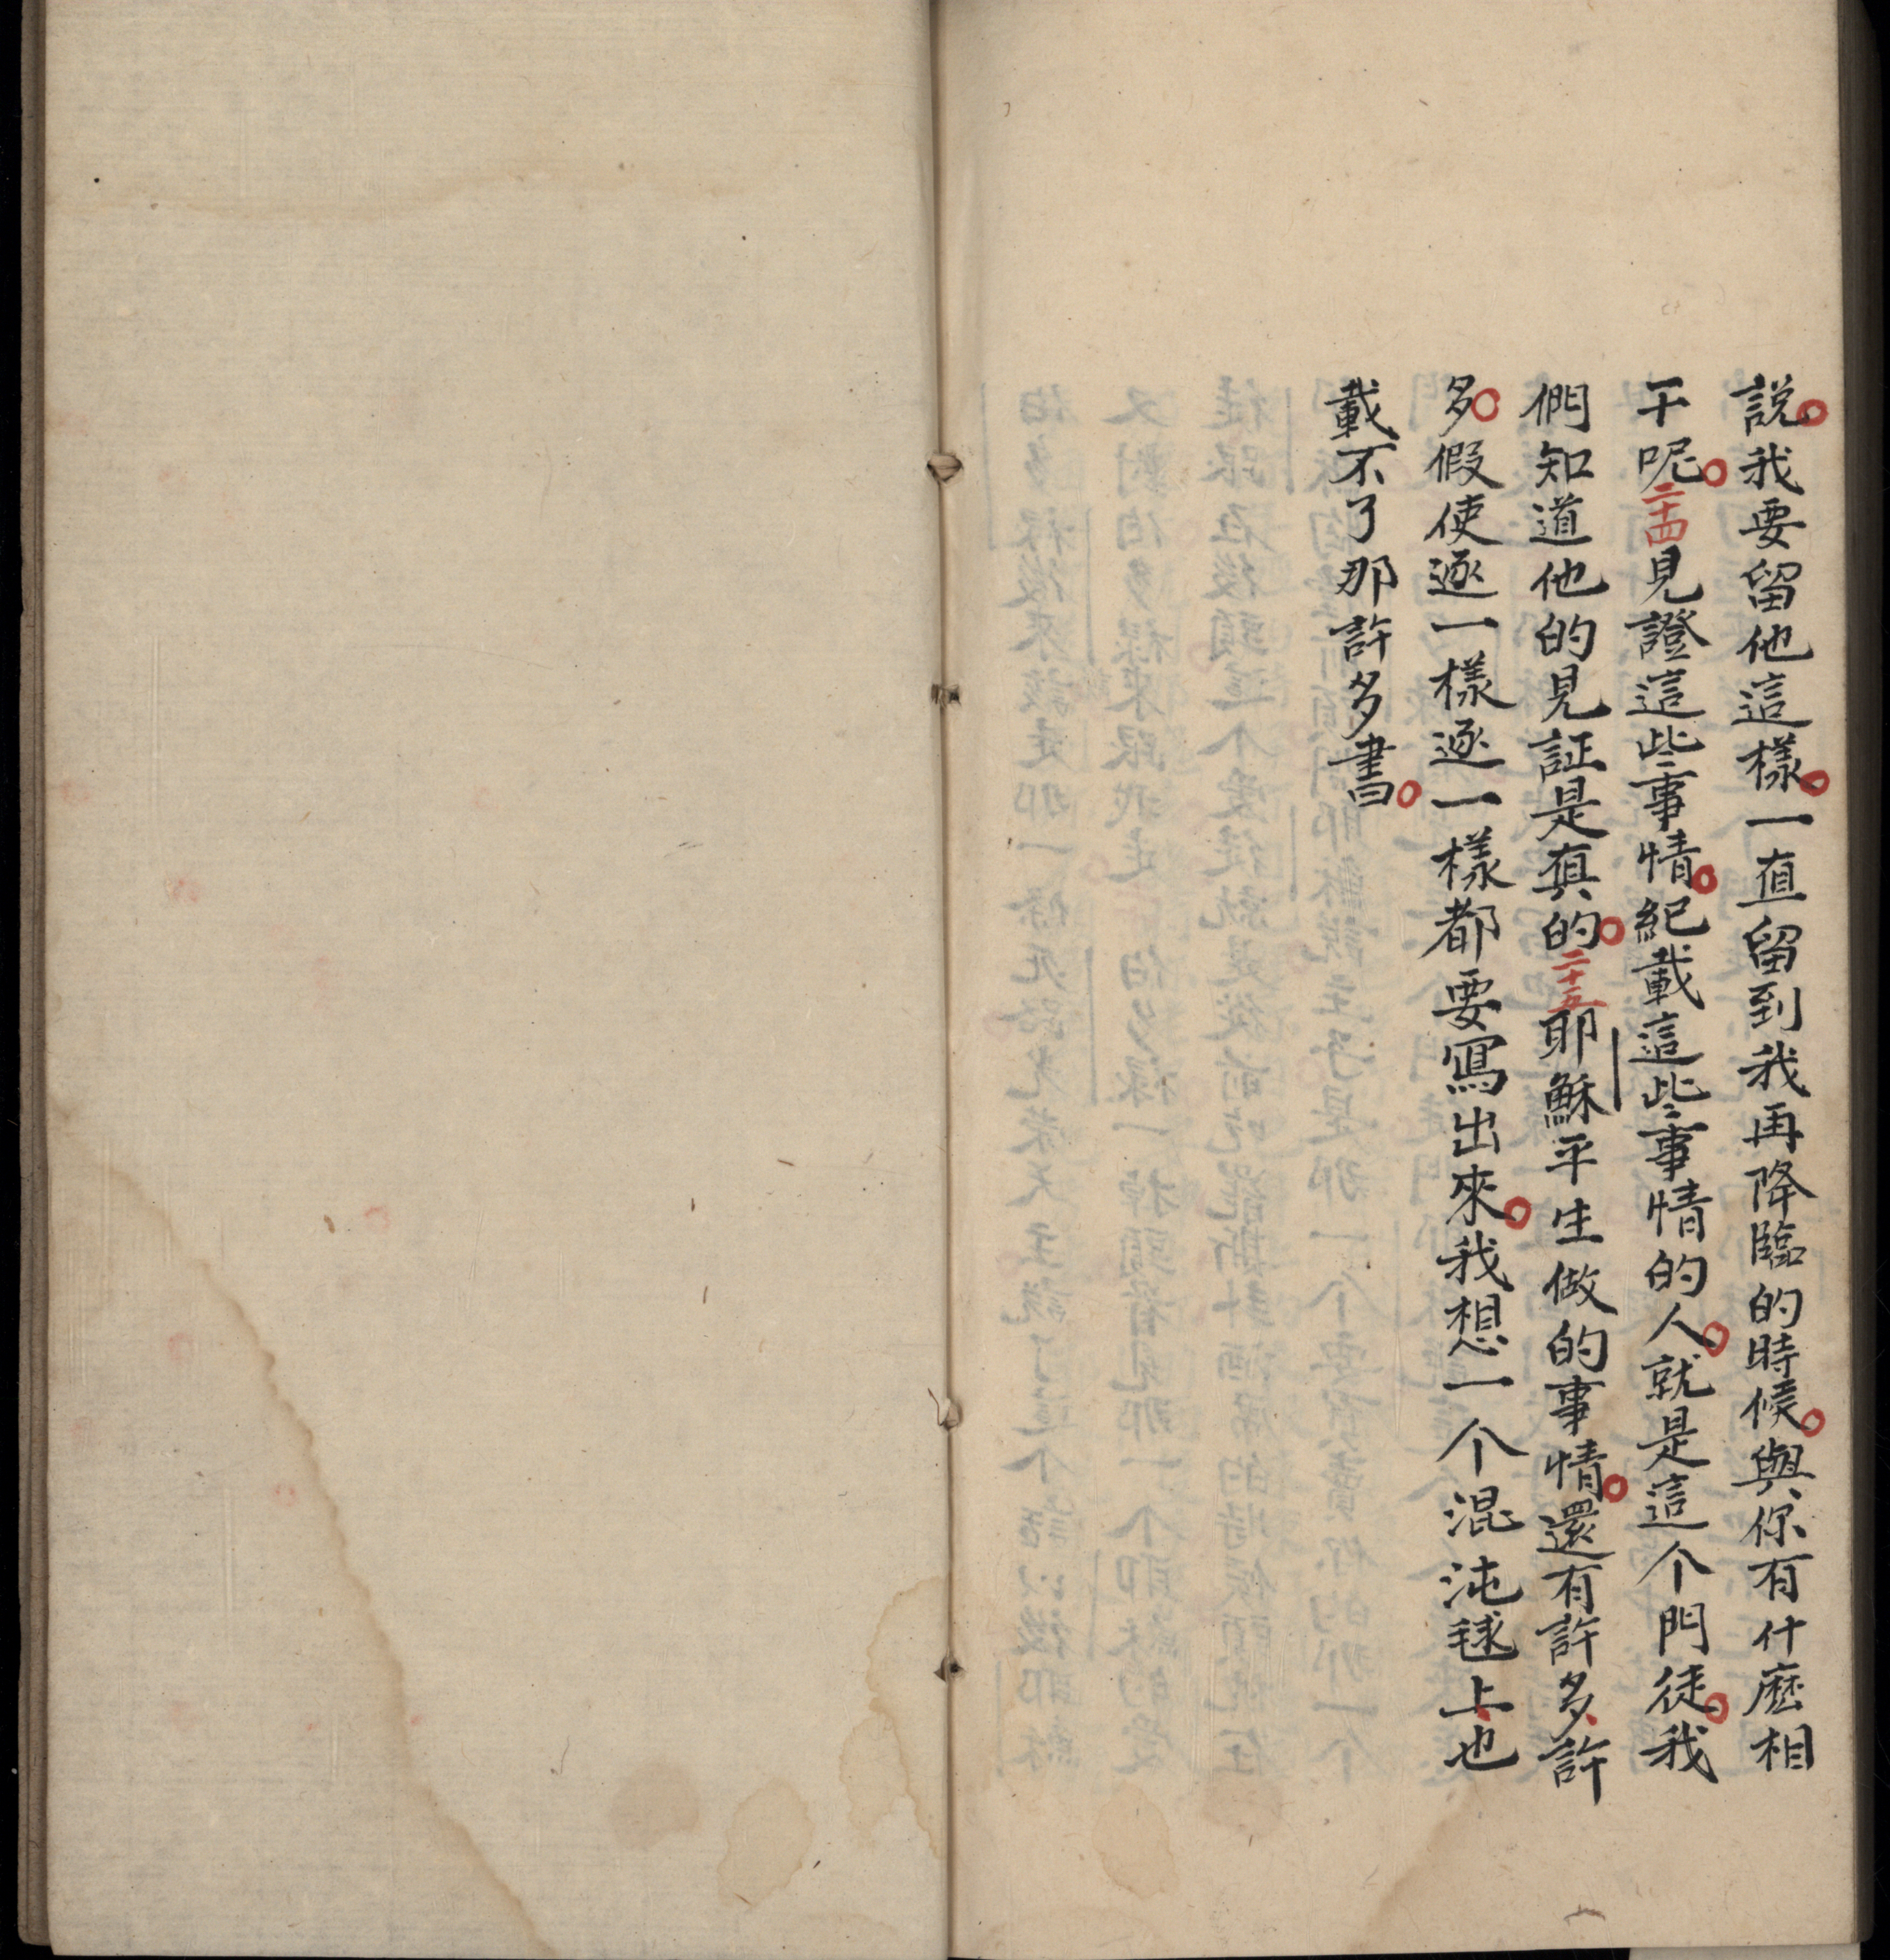 説。我要留他這樣。一直留到我再降臨的時候。與你有什麽相
干呢。二十四見證這些事情。紀載這些事情的人。就是這个門徒。我
們知道他的見証是真的。二十五耶穌平生做的事情。還有許多、許
多。假使逐一樣逐一樣都要寫出來。我想一个混沌毬上、也
載不了那許多書。